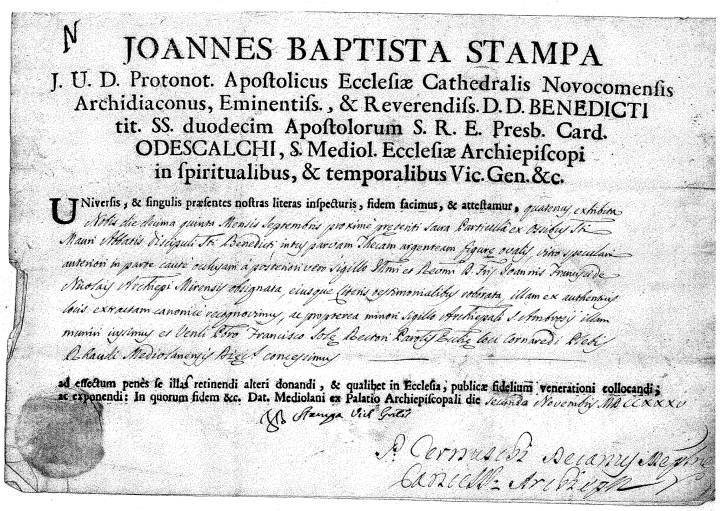 N
JOANNES BAPTISTA STAMPA
J. U. D. Protonot. Apostolicus Ecclesiæ Cathedralis Novocomensis
Archidiaconus, Eminentiss., & Reverendiss. D. D. BENEDICTI
tit. SS. duodecim Apostolorum S. R. E. Presb. Card.
ODESCALCHI, S. Mediol. Ecclesiæ Archiepiscopi
in spiritualibus, & temporalibus Vic. Gen. &c.
UNiversis, & singulis præsentes nostras literas inspecturis, fidem facimus, & attestamur, quatenus exhibita
Nobis die decima quinta Mensis Septembris proximi preteriti sacra Particula ex Ossibus Sti
Mauri Abbatis discipuli Sti Benedicti intus parvam Thecam argenteam figure ovalis vitro speculari
anteriori in parte caute occlusam à posteriori vero Sigillo Illmi et Revmi D. Fris Joannis
Nicolais Archiepi Mirensis obsignata, eiusque literis testimonialibus roborata, illam ex authenticis
locis extractam canonicè recognovimus, ac propterea minori Sigillo Archiepali S. Ambrosij illam
muniri iussimus et Francisco Sole Rectori Loci Cornaredi Plebis
Mediolanensis concessimus
ad effectum penès se illas retinendi alteri donandi, & qualibet in Ecclesia, publicæ fidelium venerationi collocandi;
ac exponendi: In quorum fidem &c. Dat. Mediolani ex Palatio Archiepiscopali die secunda Novembris MDCCXXXV
Stampa Vic Gnlis